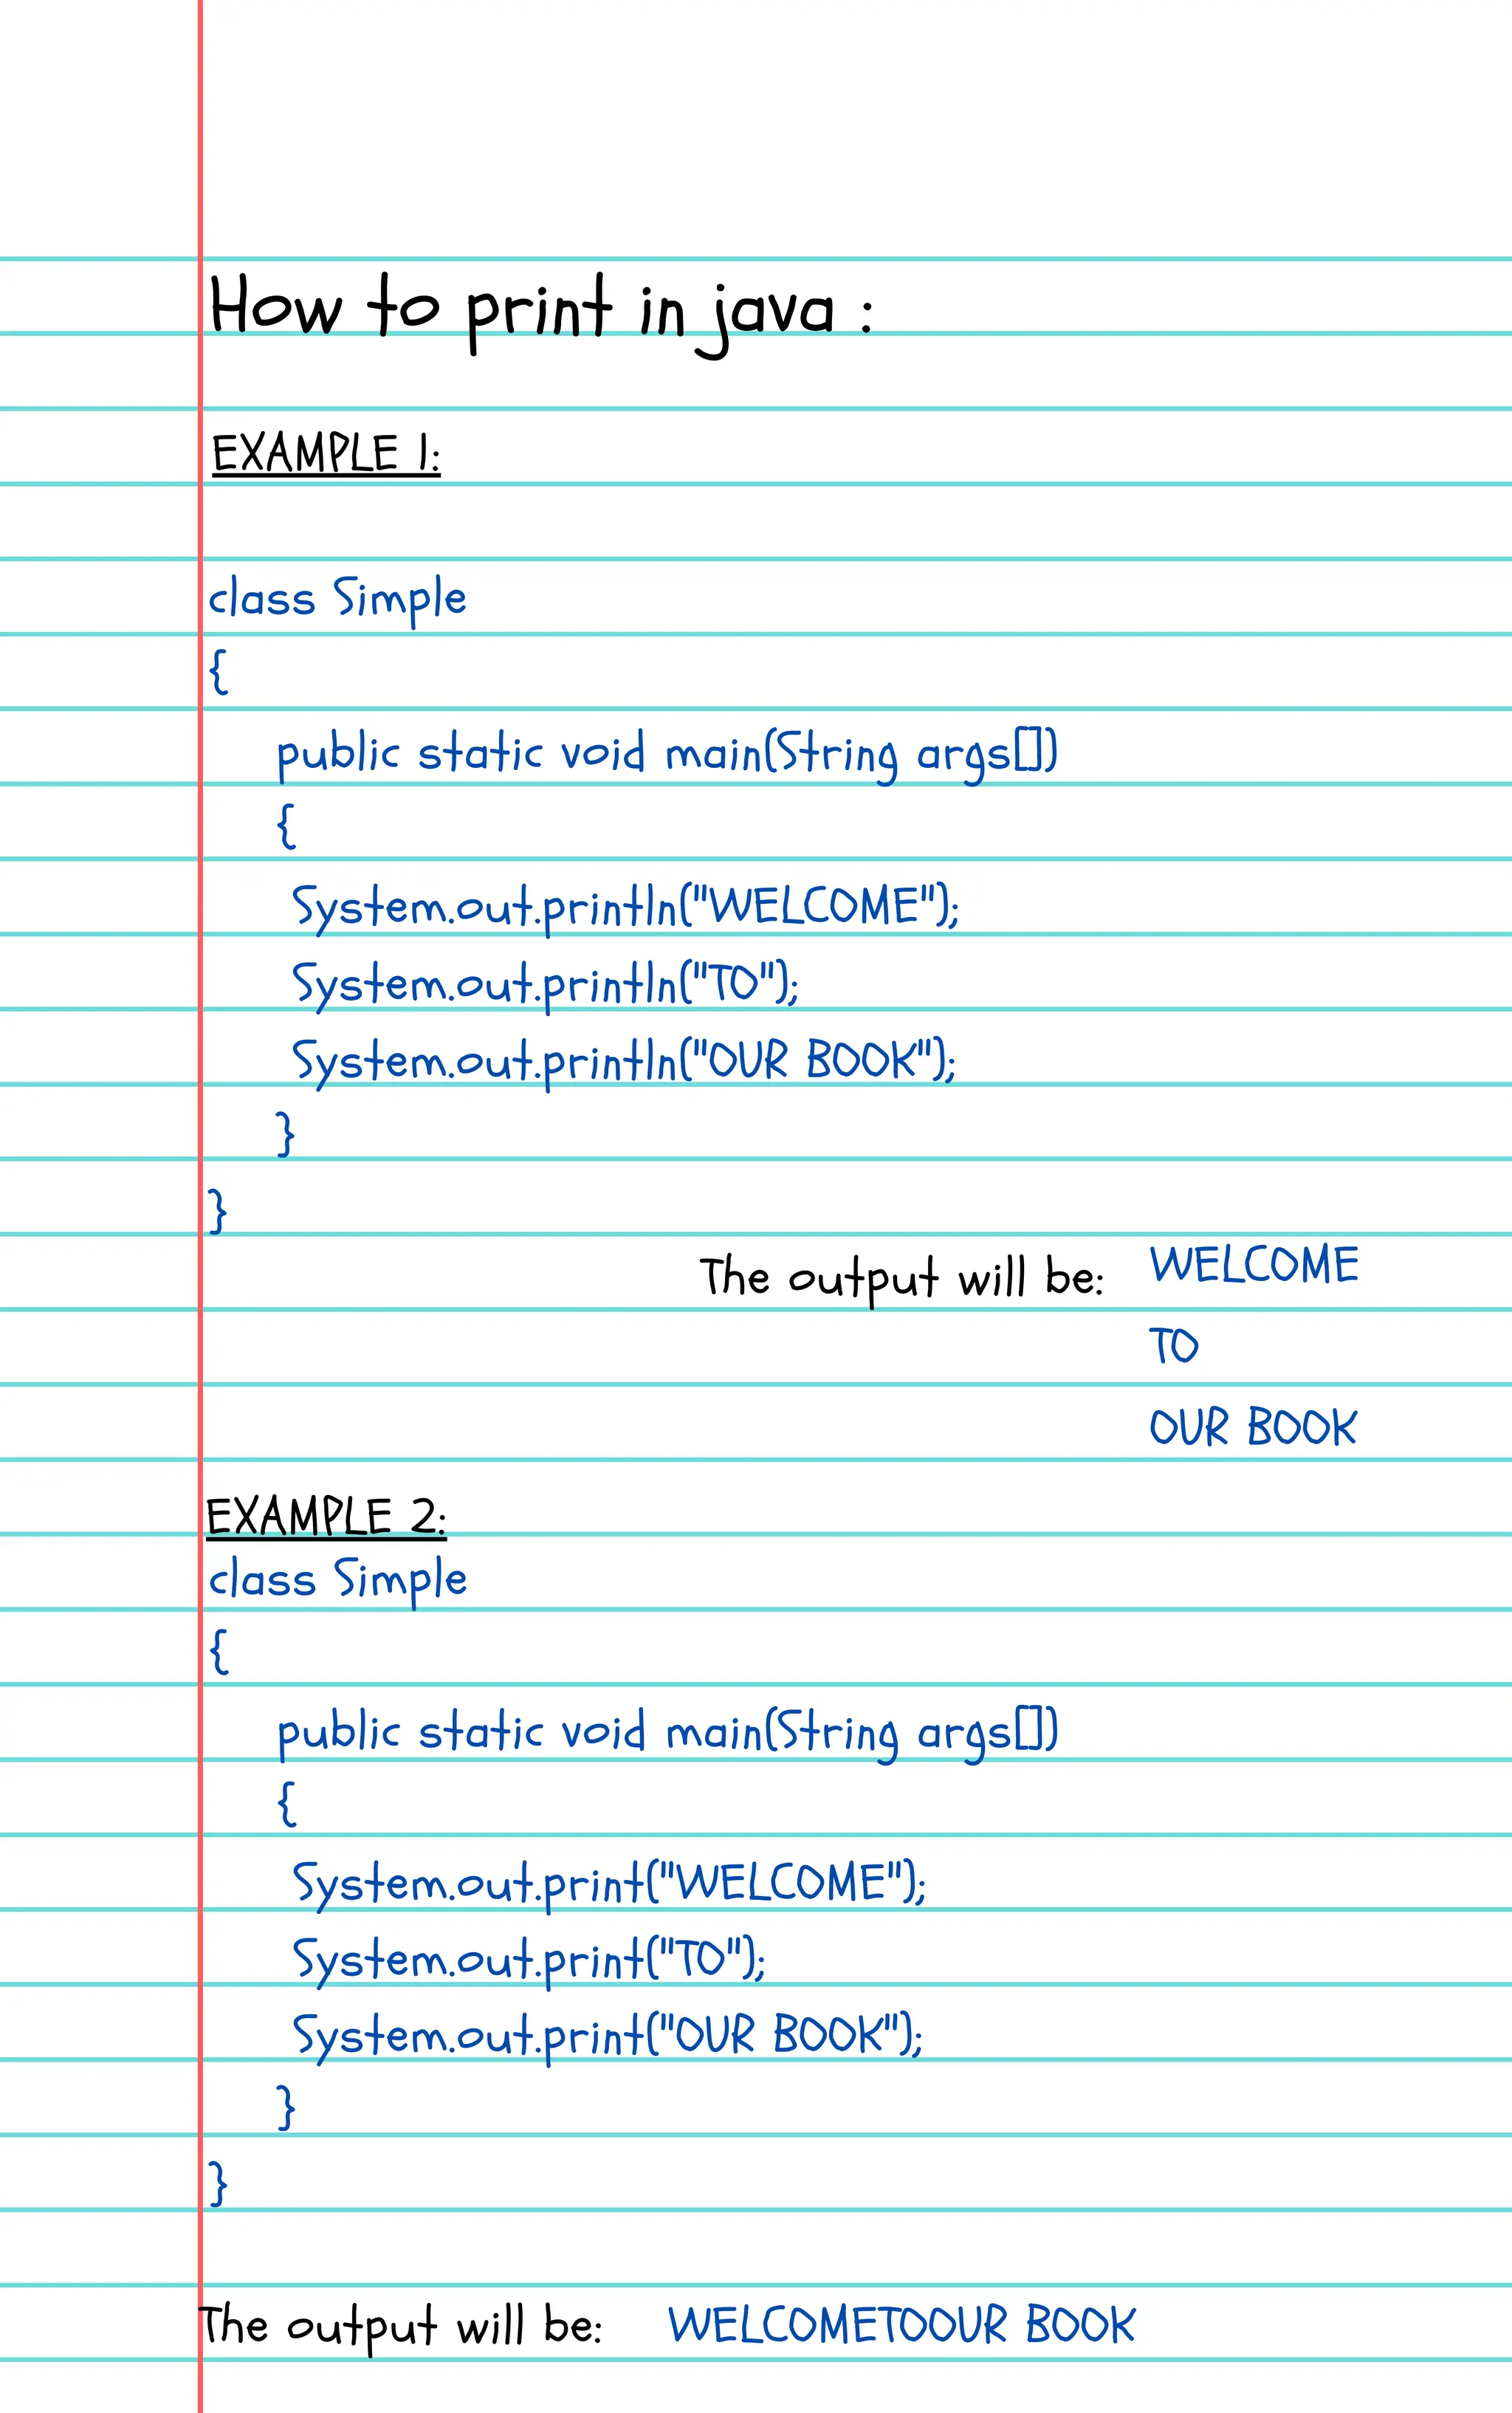 How to print in java :
EXAMPLE 1:
class Simple
{
public static void main(String args[])
{
System.out.println("WELCOME");
System.out.println("TO");
System.out.println("OUR BOOK");
}
}
The output will be: WELCOME
TO
OUR BOOK
EXAMPLE 2:
class Simple
{
public static void main(String args[])
{
System.out.print("WELCOME");
System.out.print("TO");
System.out.print("OUR BOOK");
}
}
The output will be: WELCOMETOOUR BOOK